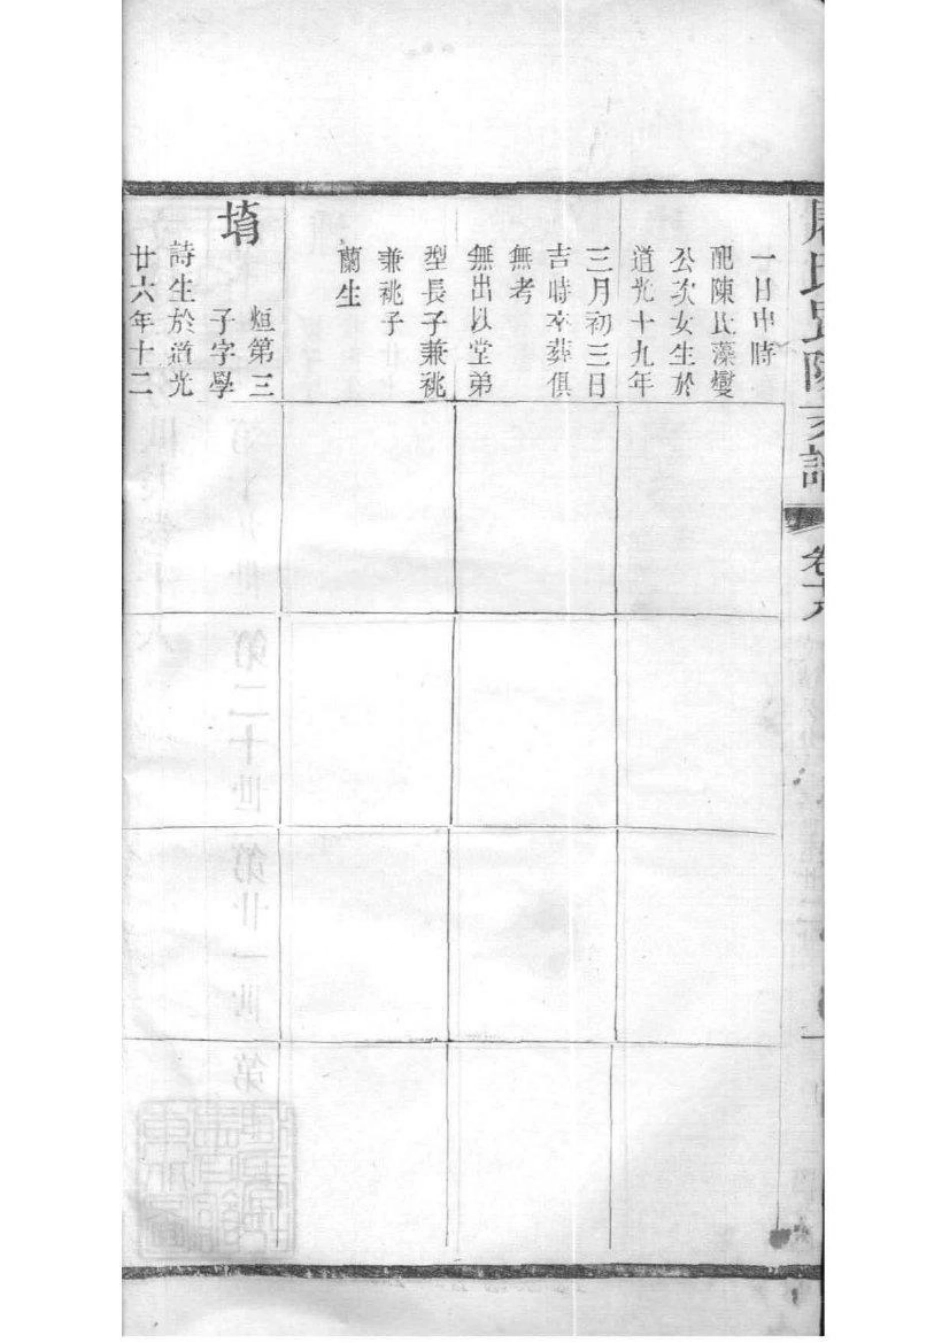 一日申時
配陳氏藻變
公次女生於
道光十九年
三月初三日
吉時卒葬俱
無考
無出以堂弟
型長子兼祧
兼祧子
蘭生
堉
烜第三
子字學
詩生於道光
廿六年十二